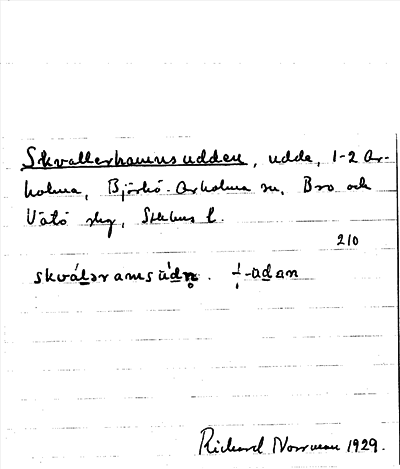 Skvallerhamnsudden, udde, 1-2 Ar-
holma, Björkö-Arholma sn, Bro och
Vätö slg, Sthlms l.
210
skválǝramsúdn̥. -udan
Richard Norrman 1929.